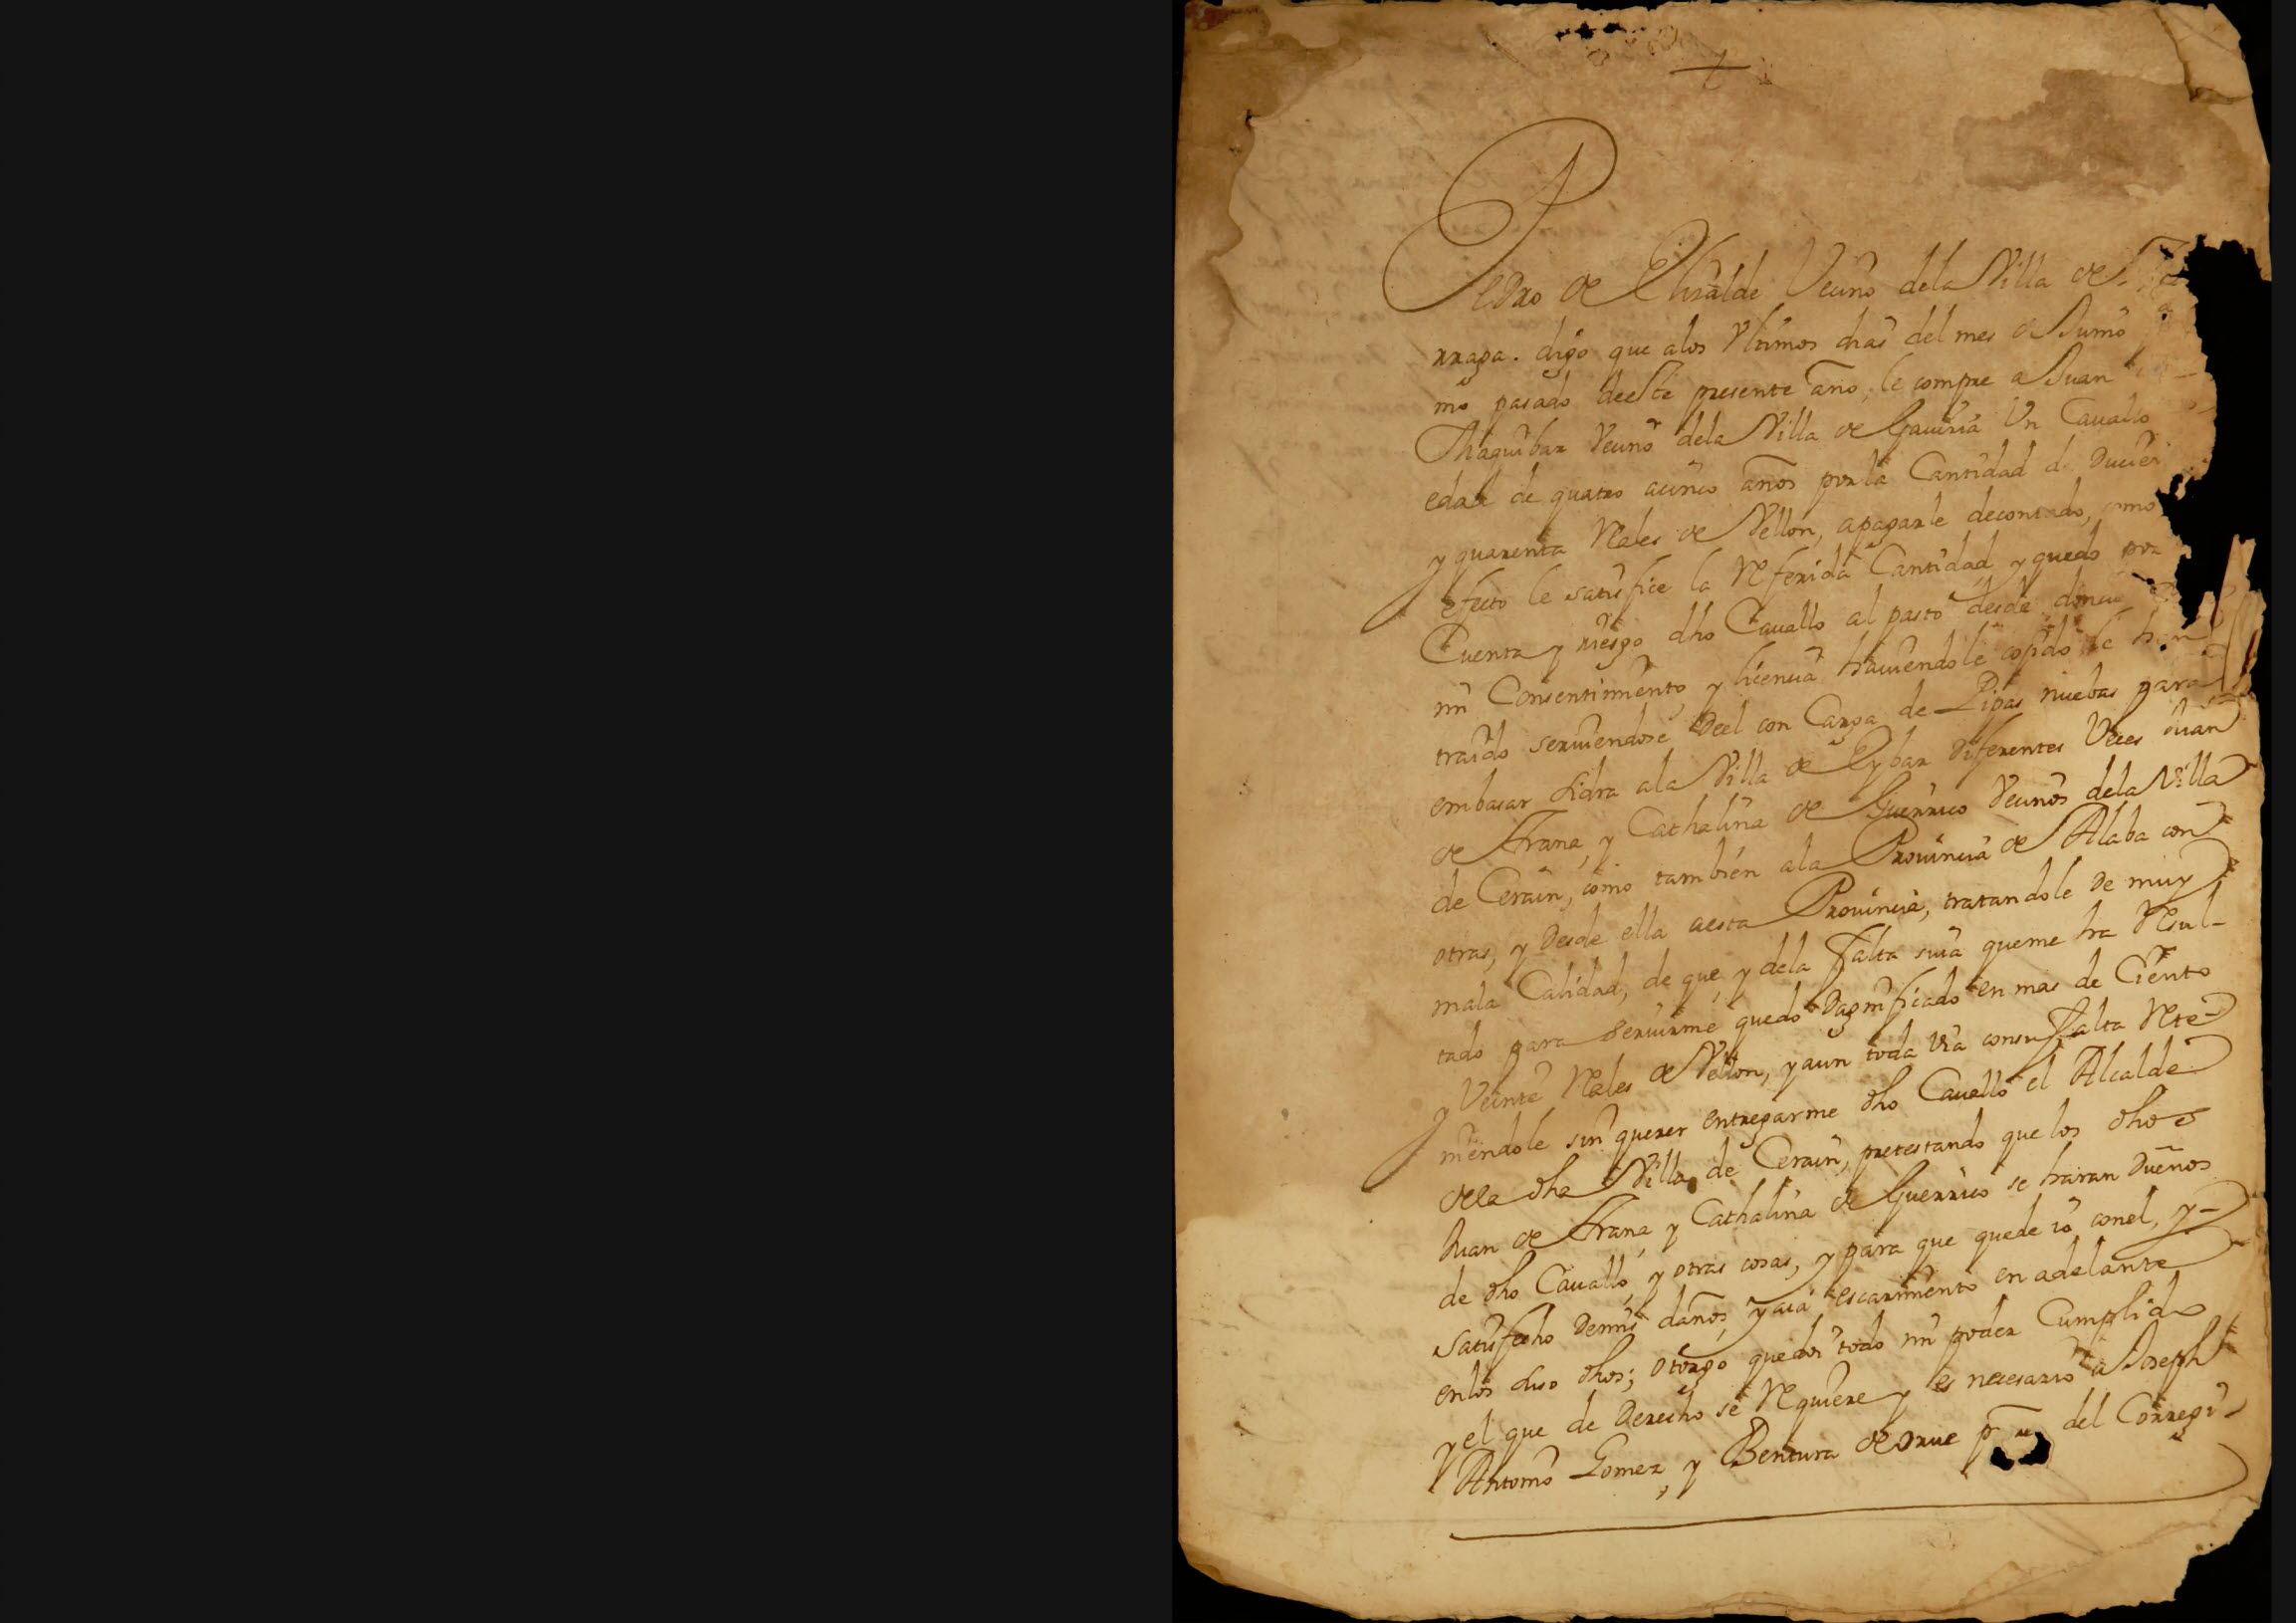 Pedro de Elizalde Vecino dela Villa de
rraga. digo que alos Vltimos dias del mes de Junio
mo pasado deeste presente año, le compre a Juan
Ihaguibar Vecino dela Villa de Gauiria Vn Cauallo
edad de quatro acinco años por la Cantidad de
y quarenta Rales de Vellon, apagarle decontado, como
efecto le satisfice la Referida Cantidad y quedo por
Cuenta y riesgo dho Cauallo al pasto desde donde
mi Consentimiento, y licencia hauiendole cogido le han
traido seruiendose deel con Carga de Pipas nuebas para
embasar sidra ala Villa de Eybar diferentes Veces Juan
de Arana, y Cathalina de Guerrico Vecinos dela Villa
de Cerain, como tambien ala Prouincia de Alaba con
otras, y desde ella aesta Prouincia, tratandole de muy
mala Calidad, de que, y dela falta suia queme ha Resul-
tado para seruirme quedo dagnificado en mas de Ciento
y Veinte Rales de Vellon, y aun toda via consu falta Rete-
niendole sin querer entregarme dho Cauallo el Alcalde
dela dha Villa de Cerain, pretestando que los dhos
Juan de Arana, y Cathalina de Guerrico se haran Dueños
de dho Cauallo, y otras cosas, y para que quede io conel, y-
satisfecho demis daños, y aia escarmiento en adelante
enlos suso dhos; otorgo quedoi todo mi poder Cumplido
y el que de Derecho se Requiere y es necesario a Joseph
Antonio Gomez, y Bentura de Orue del Corregi-